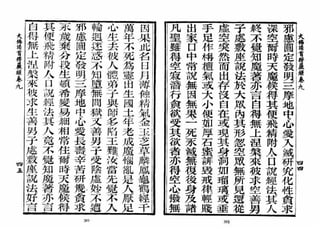 大佛頂首楞嚴經卷九
四四
邪慮圓定發明三摩地中心愛入滅研究化性貪求
深空爾時天魔候得其便飛精附人口說經法其人
終不覺知魔著亦言自得無上涅槃來彼求空善男
子處敷座說法於大眾內其形忽空眾無所見還從
虛空突然而出存沒自在或現其身洞如琉璃或垂
手足作栴檀氣或大小便如厚石蜜誹毀戒律輕賤
出家口中常說無因無果一死永滅無復後身及諸
凡聖雖得空寂潛行貪欲受其欲者亦得空心撥無
因果此名日月薄蝕精氣金玉芝草麟鳳龜鶴經千
萬年不死為靈出生國土年老成魔惱亂是人厭足
心生去彼人體弟子與師多陷王難汝當先覺不入
輪迴迷惑不知墮無間獄又善男子受陰虛妙不遭
邪慮圓定發明三摩地中心愛長壽辛苦研幾貪求
永歲棄分段生頓希變易細相常住爾時天魔候得
其便飛精附人口說經法其人竟不覺知魔著亦言
自得無上涅槃來彼求生善男子處敷座說法好言
大佛頂首楞嚴經卷九
四五